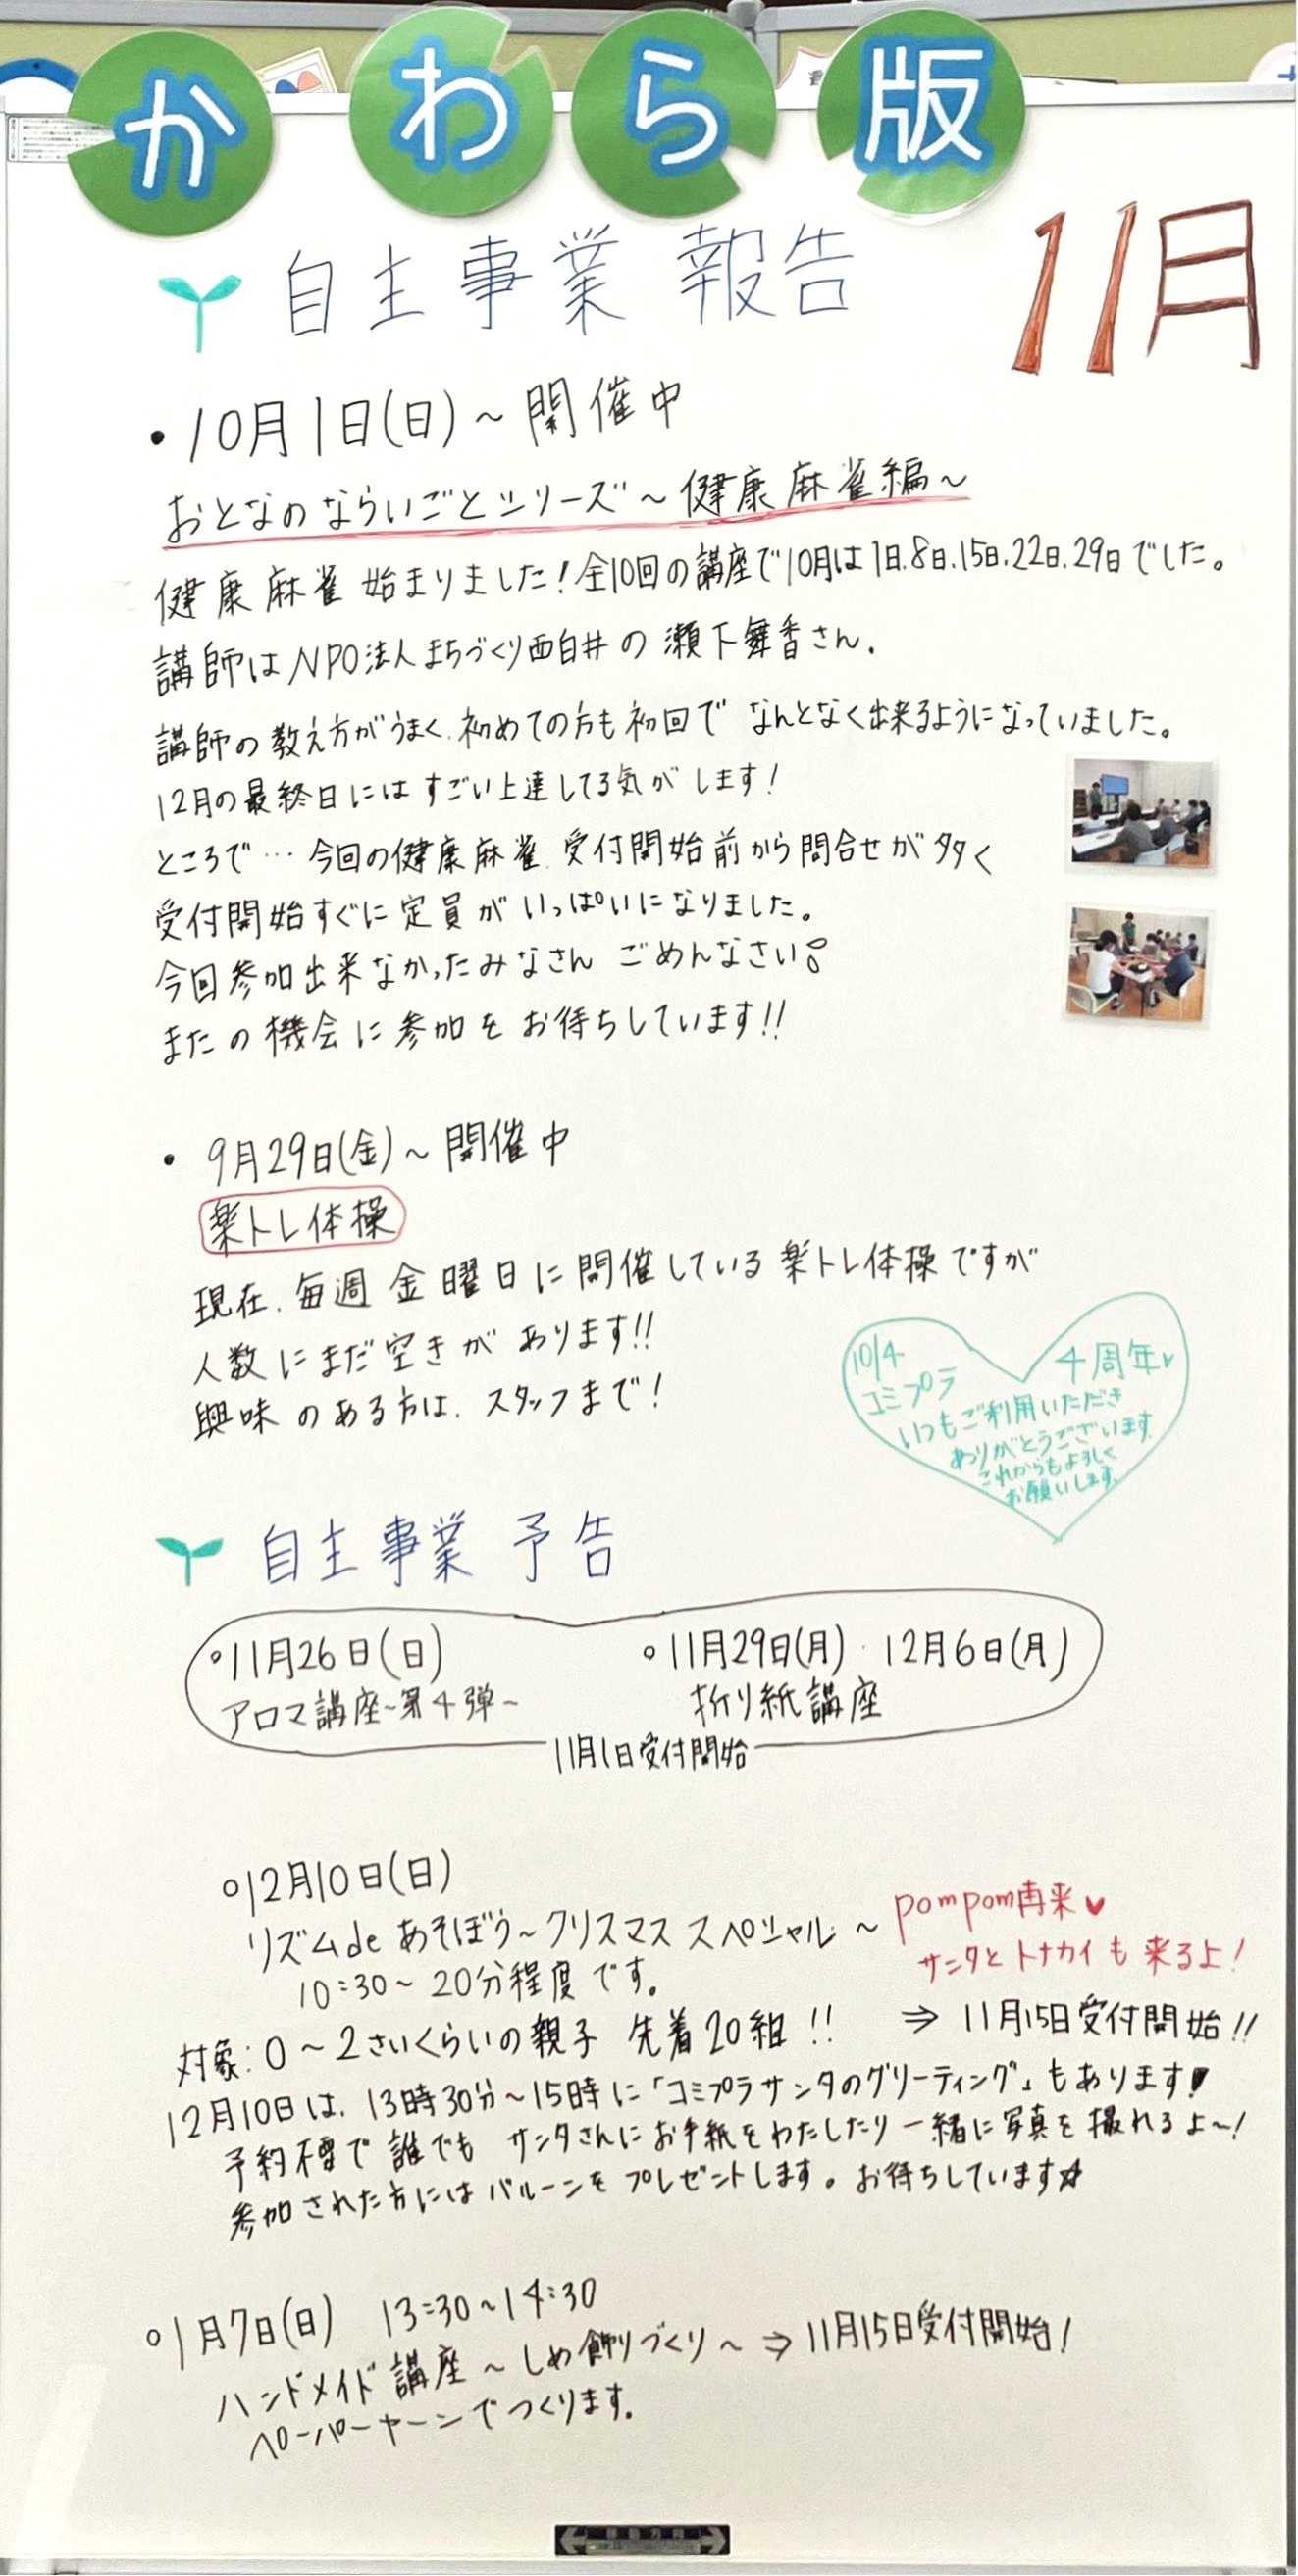 かわら版
11月
自主事業報告
・10月1日(日)~開催中
おとなのならいごとシリーズ~健康麻雀編~
健康麻雀始まりました!全10回の講座で10月は1日.8日.15日.22日.29日でした。
講師はNPO法人まちづくり西白井の瀬下舞香さん.
講師の教え方がうまく.初めての方も初回でなんとなく出来るようになっていました。
12月の最終日にはすごい上達してる気がします!
ところで…今回の健康麻雀.受付開始前から問合せが多く
受付開始すぐに定員がいっぱいになりました。
今回参加出来なかったみなさんごめんなさい
またの機会に参加をお待ちしています!!
・9月29日(金)~開催中
楽トレ体操
現在.毎週金曜日に開催している楽トレ体操ですが
人数にまだ空きがあります!!
興味のある方は.スタッフまで!
10/4
コミプラ 4周年♥
いつもご利用いただき
ありがとうございます.
これからもよろしく
お願いします.
自主事業予告
○11月26日(日)
アロマ講座~第4弾~
○11月29日(月)・12月6日(月)
折り紙講座
11月1日受付開始
○12月10日(日)
リズムdeあそぼう~クリスマススペシャル~
pompom再来♥
サンタとトナカイも来るよ!
10:30~20分程度です。
対象:0~2さいくらいの親子 先着20組!! ⇒11月15日受付開始!!
12月10日は.13時30分~15時に「コミプラサンタのグリーティング」もあります!
予約不要で誰でもサンタさんにお手紙をわたしたり一緒に写真を撮れるよ~!
参加された方にはバルーンをプレゼントします。お待ちしています☆
○1月7日(日) 13:30~14:30
ハンドメイド講座~しめ飾りづくり~⇒11月15日受付開始!
ペーパーヤーンでつくります.